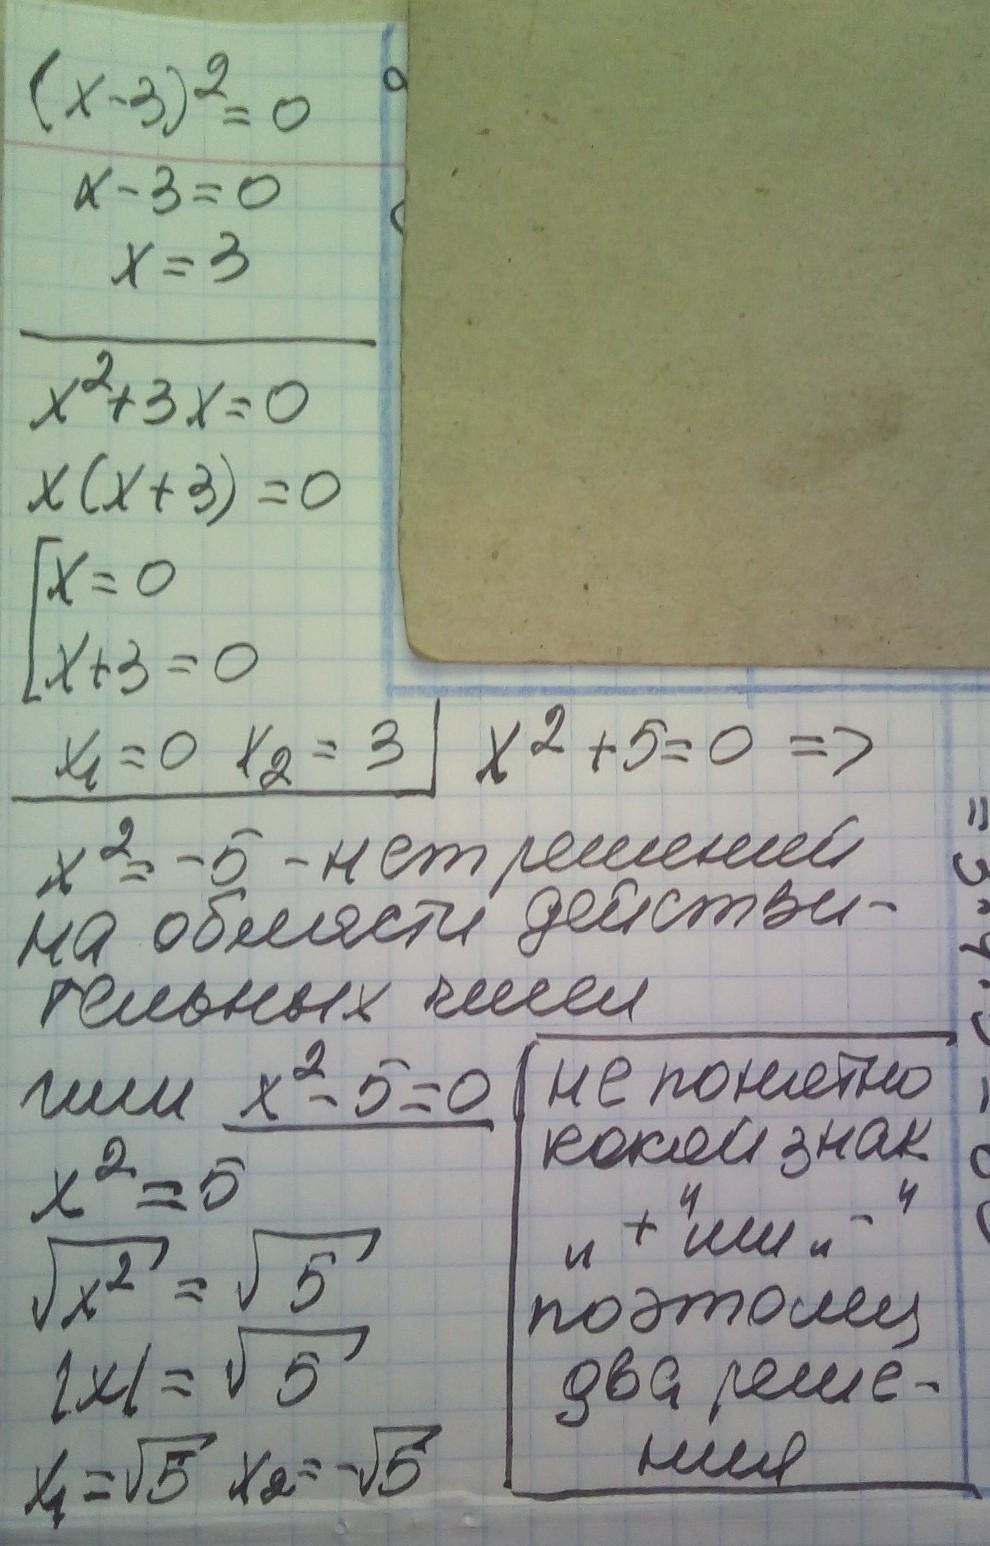 (x-3)²=0
x-3=0
x=3
x²+3x=0
x(x+3)=0
[x=0
x+3=0
x₁=0 x₂=3
x²+5=0 =>
x²=-5 - нет решений
на области действи-
тельных чисел
или x²-5=0
x²=5
√x²=√5
|x|=√5
x₁=√5 x₂=-√5
не понятно
какой знак
„+" или „-"
поэтому
два реше-
ния